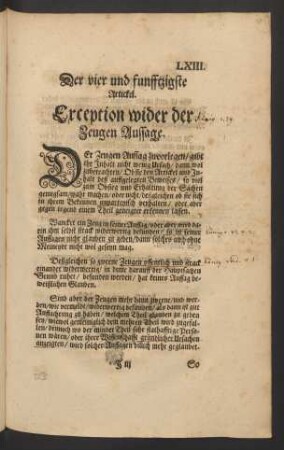 LXIII.
Der vier und funfftzigste
Artickel.
Exception wider der
Zeugen Aussage.
Der Zeugen Aussag zuvorlegen / gibt
ihr Inhalt nicht wenig Ursach / dann wol
zu betrachten / Ob sie den Artickel und In-
halt des auffgelegten Beweises / so viel
zum Obsieg und Erhaltung der Sachen
gnugsam / wahr machen / oder nicht / dergleichen ob sie sich
in ihrem Bekennen unpartheisch verhalten / oder aber
gegen irgend einem Theil geneigter erkennen lassen.
Wann er ein Zeug in seiner Aussag / oder aber
ein ihm selbst strack widerwertig befunden / so ist seiner
Aussagen nicht glauben zu geben / dann solches
Meineyde nicht wol gesein mag.
Deßgleichen so zweene Zeugen offentlich und strack
einander widerwertig / in deme darauff der Hauptsachen
Grund ruhet / befunden werden / hat keines Aussag be-
weißlichen Glauben.
Sind aber der Zeugen mehr dann zweene / und wer-
den / wie vermeldet / widerwertig befunden / So
Auffachtung zu haben / welchem Theil glauben zu geben
sey / wiewol gemeiniglich dem mehrern Theil wird zugefal-
len / dennoch wo der minder Theil sehr stathafftige Perso-
nen wären / oder ihrer Wissenschafft gründlicher Ursachen
anzeigten / wird solcher Aussagen billich mehr geglaubet.
So